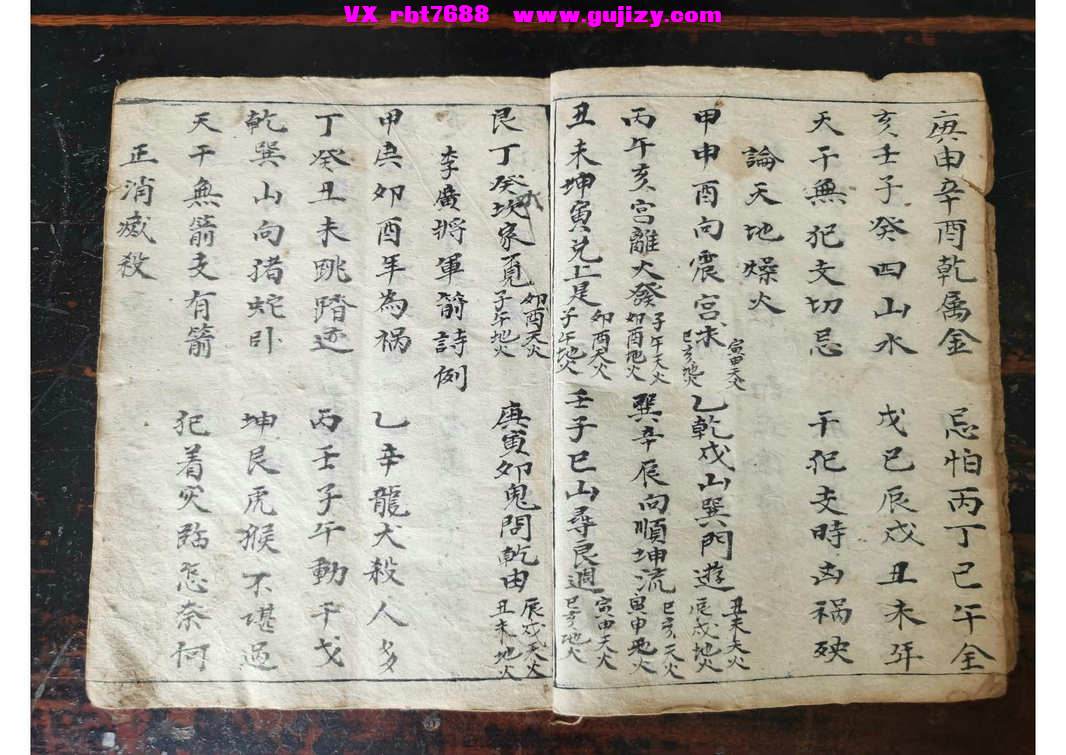 VX rbt7688 www.gujizy.com
庚申辛酉乾属金 忌怕丙丁巳午全
亥壬子癸四山水 戊己辰戌丑未年
天干無犯支切忌 干犯支時凶禍殃
論天地燥火
甲申酉向震宫求 寅申天火 巳亥地火 乙乾戌山巽門遊 丑未天火 辰戌地火
丙午亥宫離火發 子午天火 卯酉地火 巽辛辰向順坤流 巳亥天火 寅申地火
丑未坤寅兑上是 卯酉天火 子午地火 壬子巳山尋艮週 寅申天火 巳亥地火
艮丁癸坎家覓 卯酉天火 子午地火 庚寅卯鬼問乾由 辰戌天火 丑未地火
李廣將軍箭詩例
甲庚卯酉年為禍 乙辛龍犬殺人多
丁癸丑未跳踏迹 丙壬子午動干戈
乾巽山向猪蛇卧 坤艮虎猴不堪過
天干無箭支有箭 犯着災臨怎奈何
正消滅殺